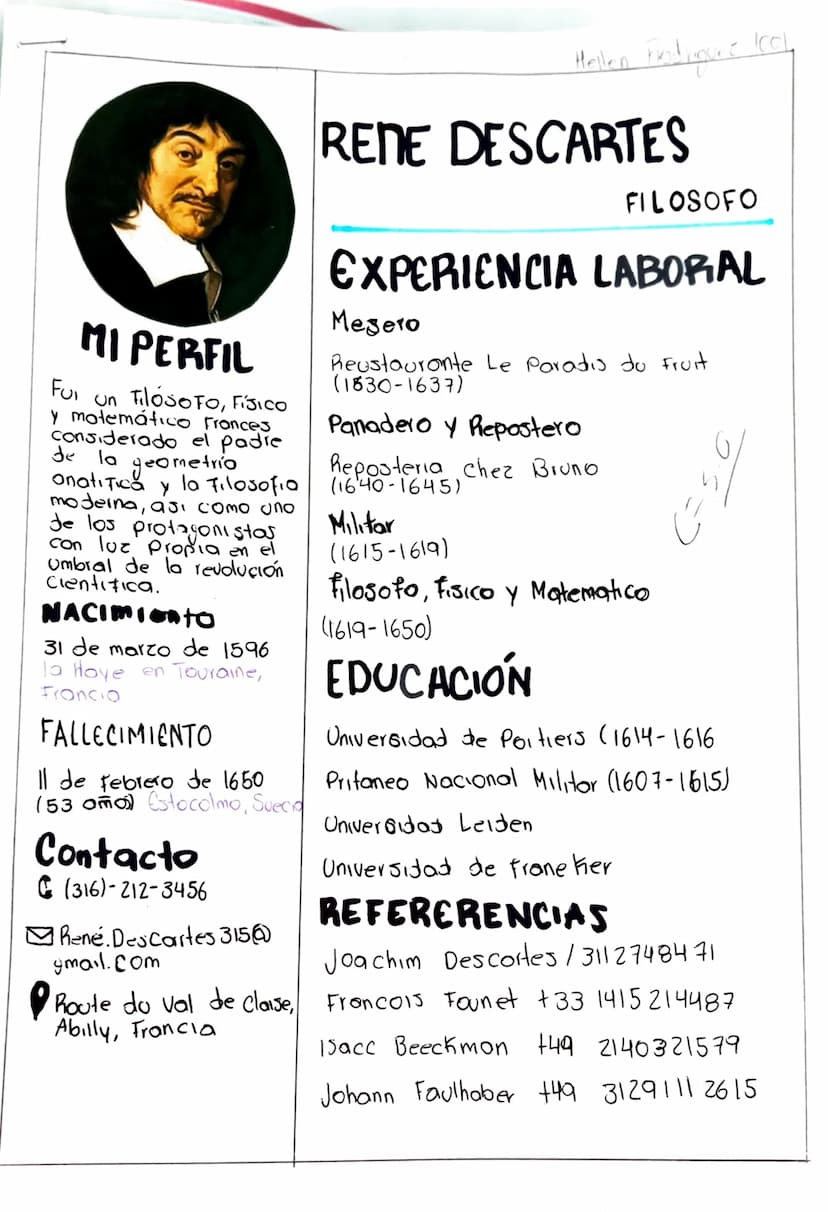 Hellen Rodriguez 1001
RENE DESCARTES
FILOSOFO
MI PERFIL
Fui un filósofo, físico
y matemático frances
considerado el padre
de la geometria
analitica y la filosofia
moderna, asi como uno
de los protagonistas
con luz propia en el
umbral de la revolución
cientifica.
NACIMIENTO
31 de marzo de 1596
la Haye en Touraine,
Francia
FALLECIMIENTO
11 de febrero de 1650
(53 años) Estocolmo, Suecia
Contacto
(316)-212-3456
René.Descartes315@
gmail.com
Route du Val de Claise,
Abilly, Francia
EXPERIENCIA LABORAL
Mesero
Reustaurante Le Paradis du Fruit
(1630-1637)
Panadero y Repostero
Reposteria Chez Bruno
(1640-1645)
Militar
(1615-1619)
filosofo, fisico y Matematico
(1619-1650)
EDUCACIÓN
Universidad de Poitiers (1614-1616
Pritaneo Nacional Militar (1607-1615)
Universidad Leiden
Universidad de franeker
REFERERENCIAS
Joachim Descartes / 3112748471
Francois Founet +33 1415214487
Isacc Beeckmon +49 2140321579
Johann Faulhaber +49 3129111 2615